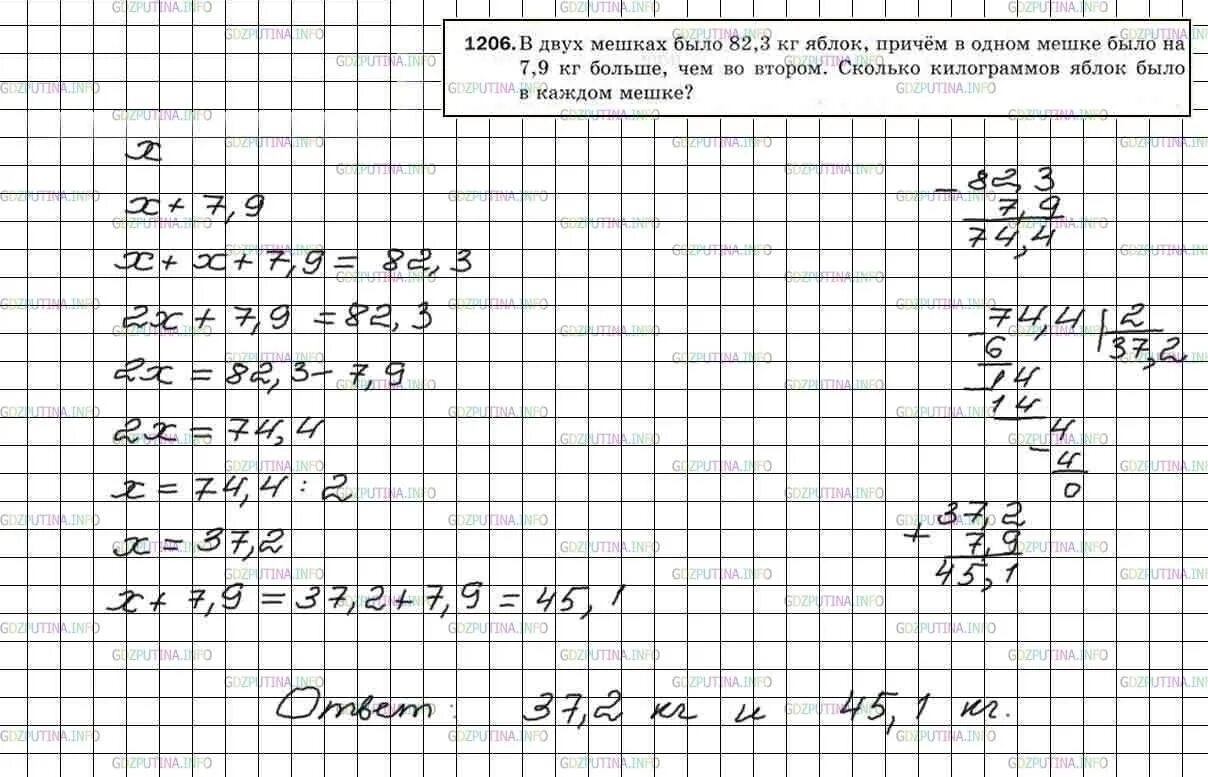 1206. В двух мешках было 82,3 кг яблок, причём в одном мешке было на
7,9 кг больше, чем во втором. Сколько килограммов яблок было
в каждом мешке?
x
x + 7,9
x + x + 7,9 = 82,3
2x + 7,9 = 82,3
2x = 82,3 - 7,9
2x = 74,4
x = 74,4 : 2
x = 37,2
x + 7,9 = 37,2 + 7,9 = 45,1
- 82,3
7,9
74,4
- 74,4 | 2
6 37,2
- 14
14
- 4
4
0
+ 37,2
7,9
45,1
Ответ: 37,2 кг и 45,1 кг.
GDZPUTINA.INFO